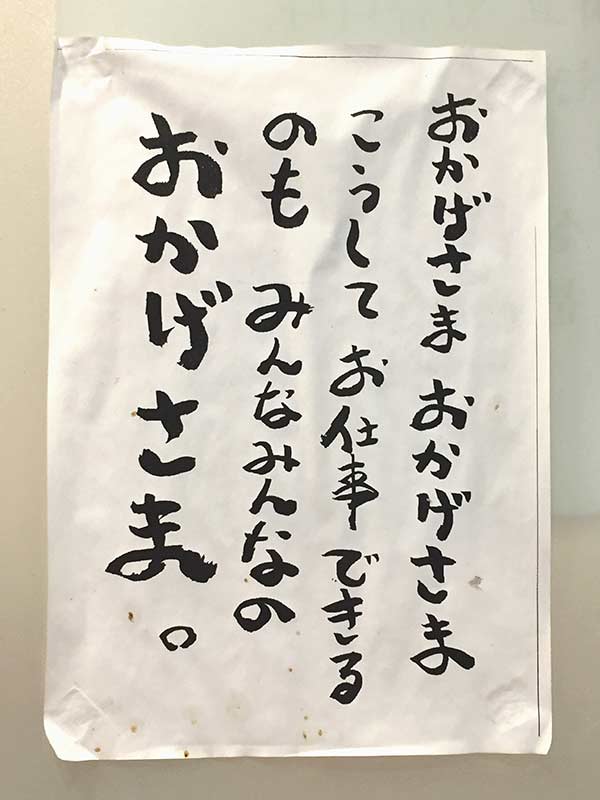 おかげさま おかげさま
こうして お仕事できる
のも みんなみんなの
おかげさま。